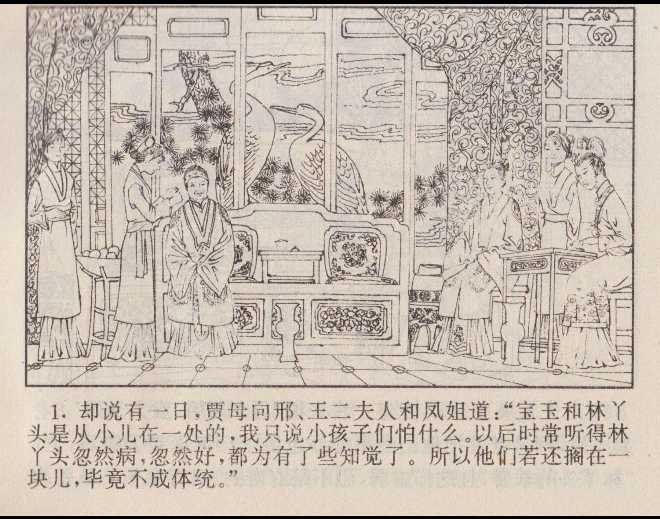 1. 却说有一日，贾母向邢、王二夫人和凤姐道：“宝玉和林丫
头是从小儿在一处的，我只说小孩子们怕什么。以后时常听得林
丫头忽然病，忽然好，都为有了些知觉了。所以他们若还搁在一
块儿，毕竟不成体统。”